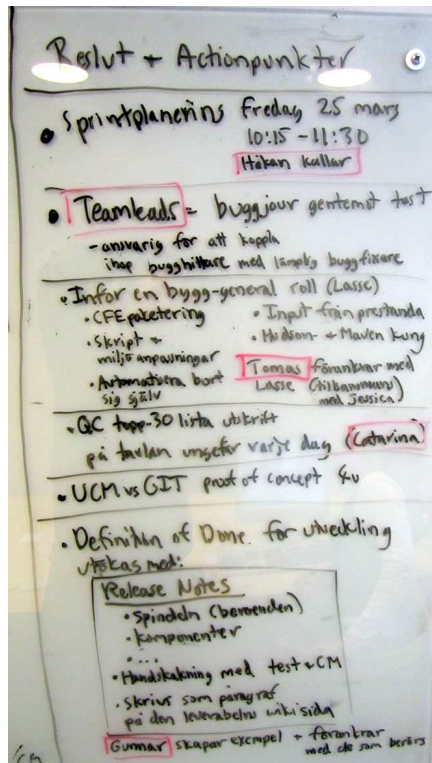 Beslut + Actionpunkter
• Sprintplanering Fredag 25 mars
10:15 - 11:30
Håkan kallar
• Teamleads = buggjour gentemot test
- ansvarig för att koppla
ihop bugghittare med lämplig buggfixare
• Inför en bygg-general roll (Lasse)
• CFE paketering
• Skript +
miljöanpassningar
• Automatisera bort
sig själv
• Input från prestanda
• Hudson- & Maven kung
Tomas förankrar med
Lasse (tillsammans
med Jessica)
• QC topp-30 lista utskrift
på tavlan ungefär varje dag (Catarina)
• UCM vs GIT proof of concept
• Definition of Done för utveckling
utökas med:
Release Notes
• Spindeln (beroenden)
• Komponenter
• ....
• Handskakning med test & CM
• Skrivs som paragraf
på den leverabelns wikisida
Gunnar skapar exempel + förankrar
med de som berörs